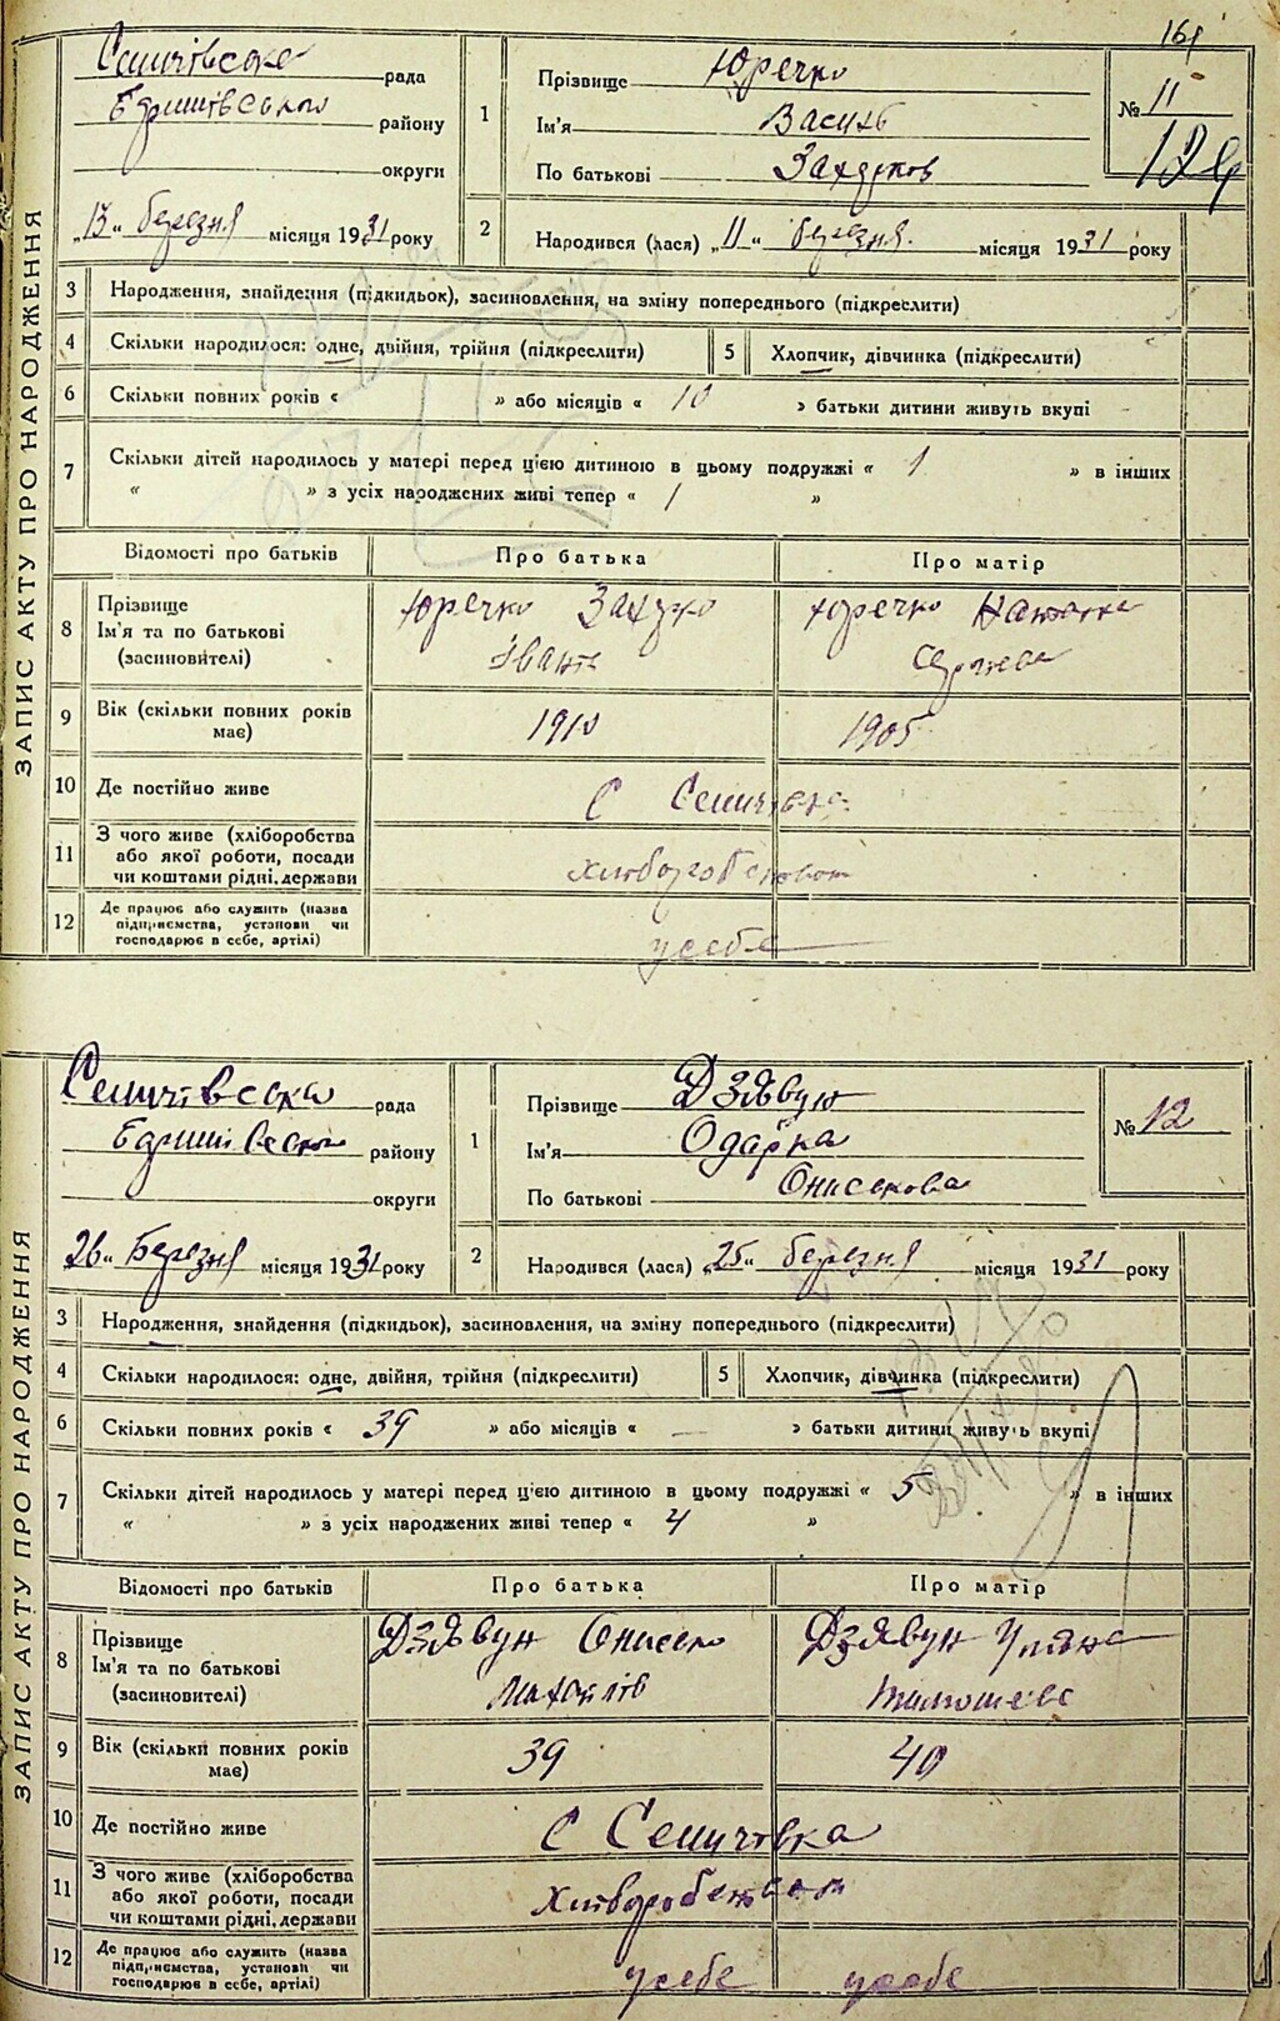 161
ЗАПИС АКТУ ПРО НАРОДЖЕННЯ
Семичівська рада
району
округи
„13“ березня місяця 1931 року
1 Прізвище Юречко
Ім'я Василь
По батькові Захарков
№ 11
12
2 Народився (лася) „11“ березня місяця 1931 року
3 Народження, знайдення (підкидьок), засиновлення, на зміну попереднього (підкреслити)
4 Скільки народилося: одне, двійня, трійня (підкреслити) 5 Хлопчик, дівчинка (підкреслити)
6 Скільки повних років « » або місяців « 10 » батьки дитини живуть вкупі
7 Скільки дітей народилось у матері перед цією дитиною в цьому подружжі « 1 » в інших
« » з усіх народжених живі тепер « 1 »
Відомості про батьків Про батька Про матір
8 Прізвище Юречко Захарко Юречко
Ім'я та по батькові
(засиновителі)
9 Вік (скільки повних років 1910 1905
має)
10 Де постійно живе С Семичівка
11 З чого живе (хліборобства
або якої роботи, посади хліборобством
чи коштами рідні, держави
12 Де працює або служить (назва
підприємства, установи чи у себе
господарює в себе, артілі)
ЗАПИС АКТУ ПРО НАРОДЖЕННЯ
Семичівська рада
району
округи
26“ Березня місяця 1931 року
1 Прізвище Дзявун
Ім'я Одарка
По батькові Ониськова
№ 12
2 Народився (лася) „25“ березня місяця 1931 року
3 Народження, знайдення (підкидьок), засиновлення, на зміну попереднього (підкреслити)
4 Скільки народилося: одне, двійня, трійня (підкреслити) 5 Хлопчик, дівчинка (підкреслити)
6 Скільки повних років « 39 » або місяців « — » батьки дитини живуть вкупі
7 Скільки дітей народилось у матері перед цією дитиною в цьому подружжі « 5 » в інших
« » з усіх народжених живі тепер « 4 »
Відомості про батьків Про батька Про матір
8 Прізвище Дзявун Онисько Дзявун Уляна
Ім'я та по батькові
(засиновителі)
9 Вік (скільки повних років 39 40
має)
10 Де постійно живе С Семичівка
11 З чого живе (хліборобства
або якої роботи, посади хліборобством
чи коштами рідні, держави
12 Де працює або служить (назва
підприємства, установи чи у себе у себе
господарює в себе, артілі)